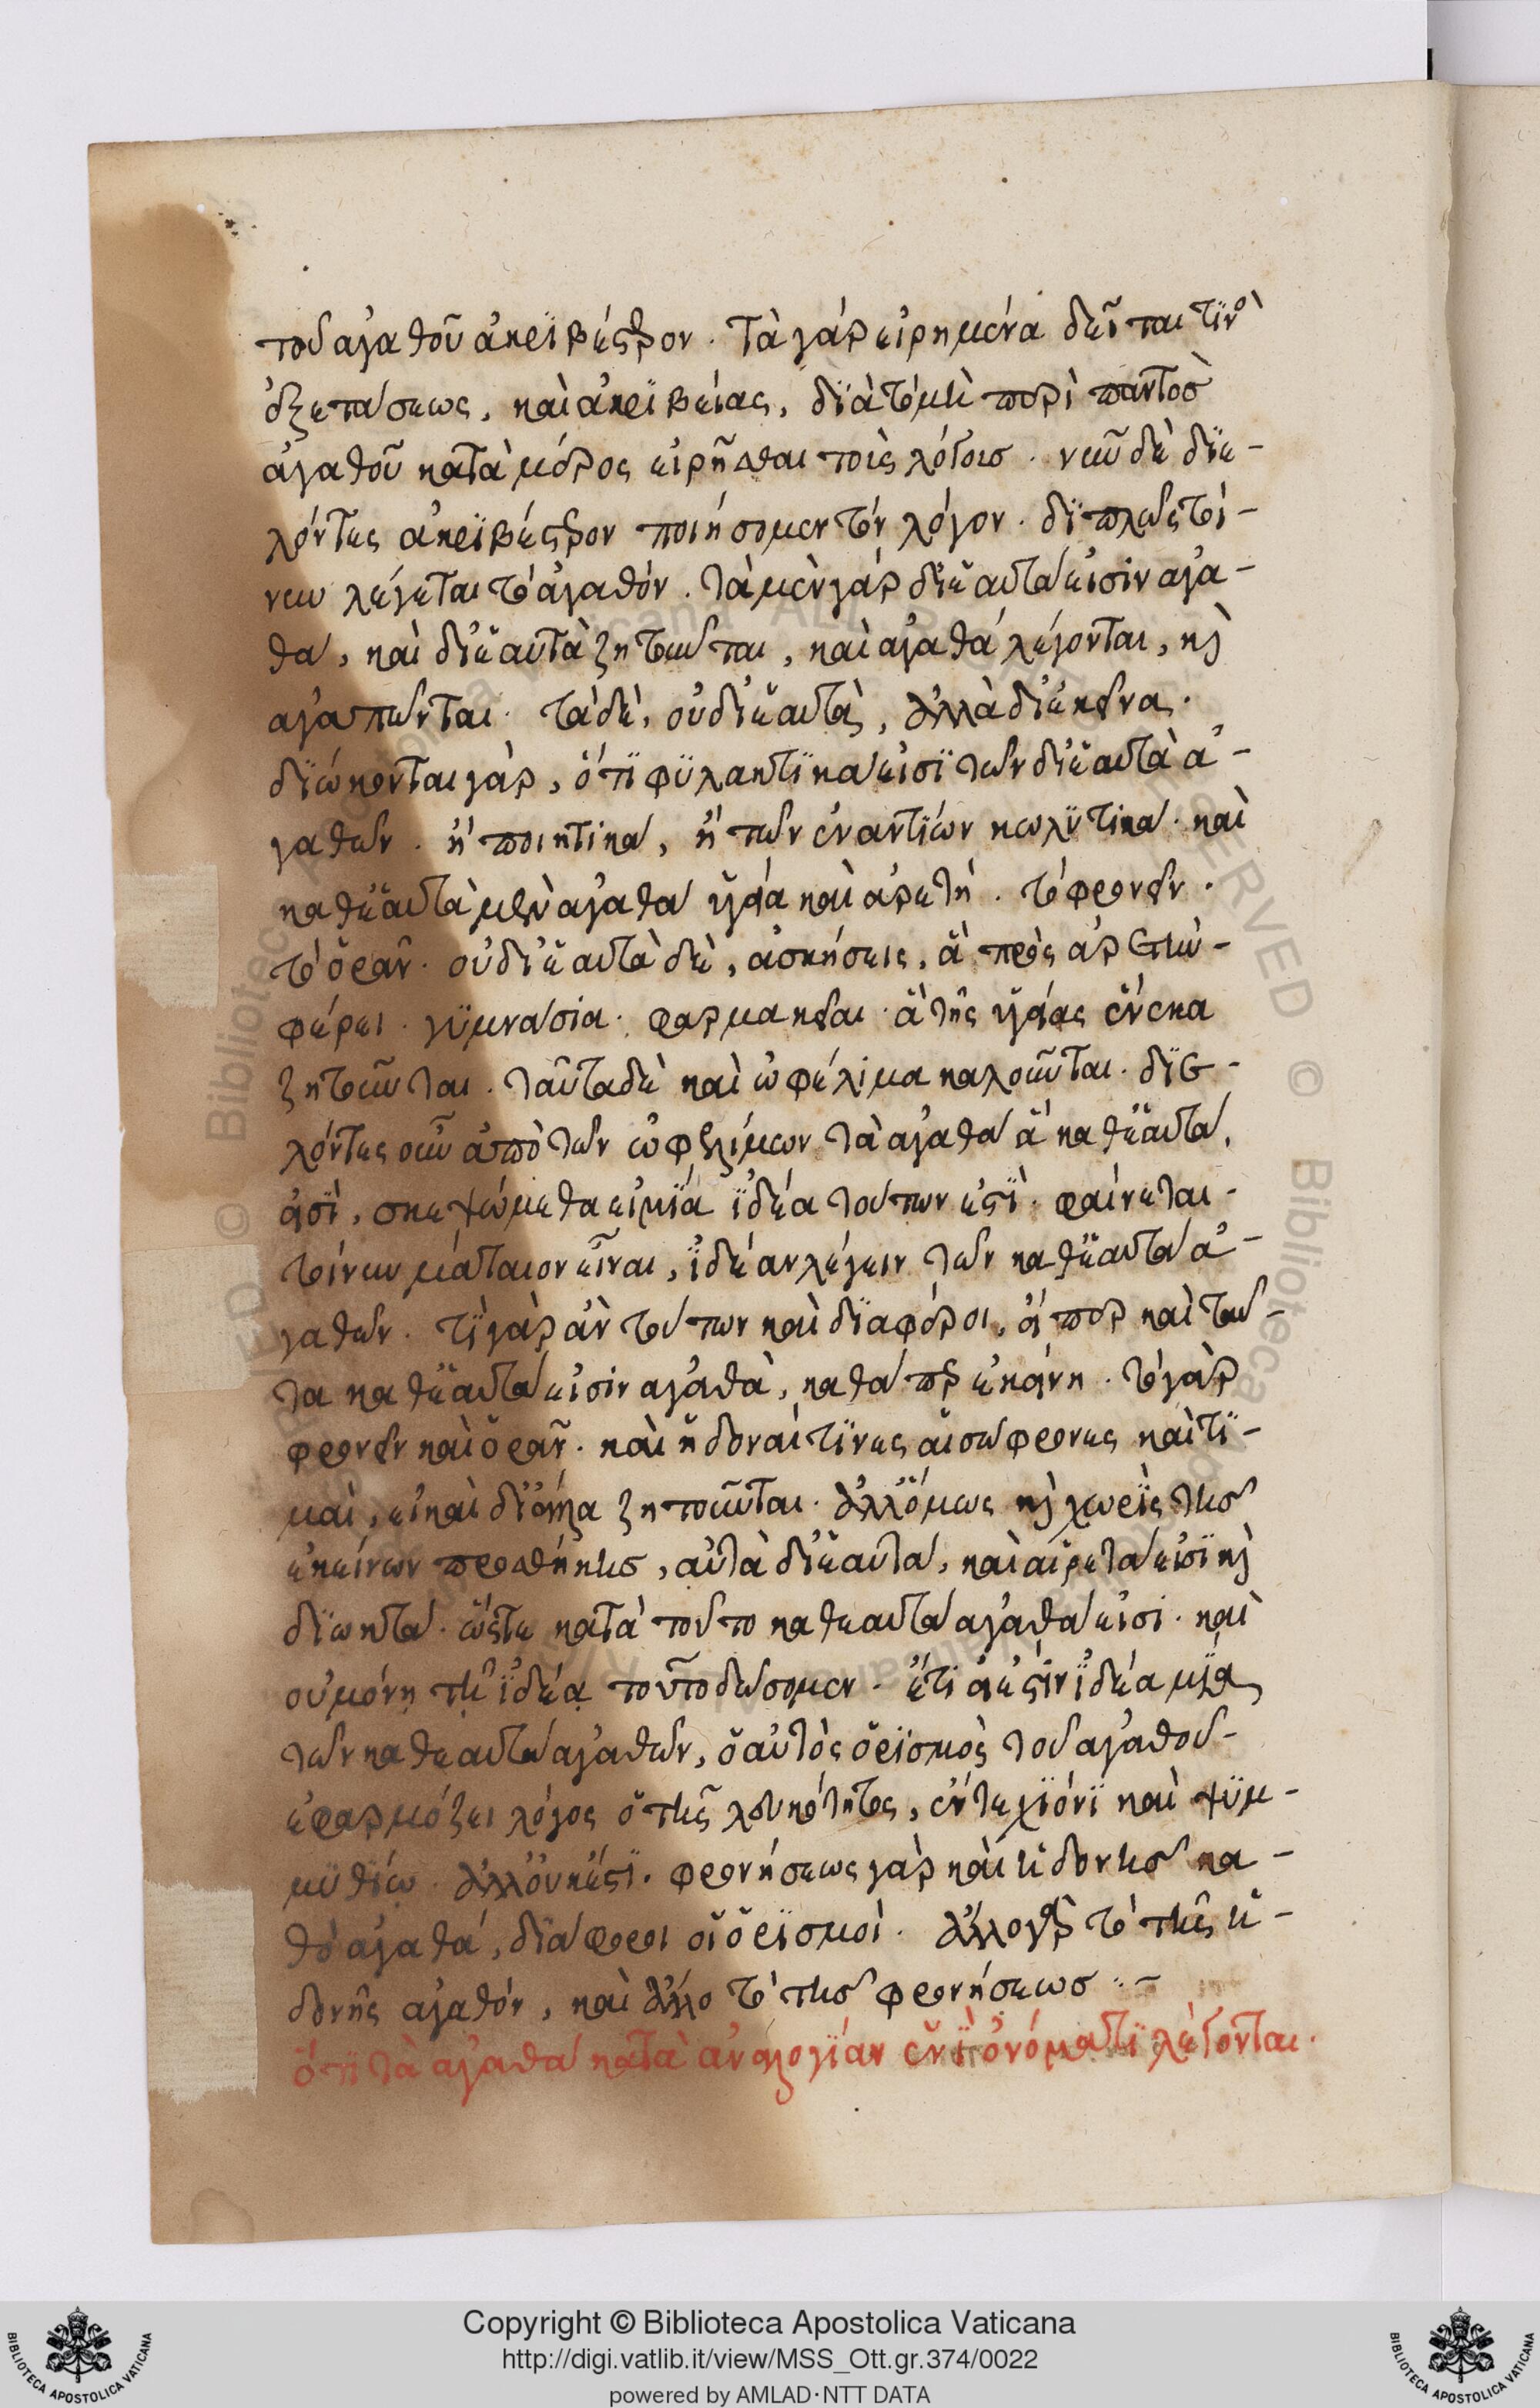 τοῦ ἀγαθοῦ ἀκριβέστερον. Τὰ γὰρ εἰρημένα δεῖται τινὸς
ἐξετάσεως, καὶ ἀκριβείας, διὰ τὸ μὴ περὶ παντὸς
ἀγαθοῦ κατὰ μέρος εἰρῆσθαι τοῖς λόγοις. νῦν δὲ διε-
λόντες ἀκριβέστερον ποιήσομεν τὸν λόγον. διπλῶς τοί-
νυν λέγεται τὸ ἀγαθόν. τὰ μὲν γὰρ δι' ἑαυτά εἰσιν ἀγα-
θά, καὶ δι' ἑαυτὰ ζητοῦνται, καὶ ἀγαθὰ λέγονται, καὶ
ἀγαπῶνται. τὰ δὲ, οὐ δι' ἑαυτὰ, ἀλλὰ δι' ἐκεῖνα.
διώκονται γὰρ, ὅτι φυλακτικά εἰσι τῶν δι' ἑαυτὰ ἀ-
γαθῶν. ἢ ποιητικά, ἢ τῶν ἐναντίων κωλυτικά. καὶ
καθ' ἑαυτὰ μὲν ἀγαθὰ ὑγεία καὶ ἀρετή. τὸ φρονεῖν.
τὸ ὁρᾶν. οὐ δι' ἑαυτὰ δὲ, ἀσκήσεις, ἃ πρὸς ἀρετὴν
φέρει. γυμνασία. φαρμακεῖαι. ἃ τῆς ὑγείας ἕνεκα
ζητοῦνται. ταῦτα δὲ καὶ ὠφέλιμα καλοῦνται. διε-
λόντες οὖν ἀπὸ τῶν ὠφελίμων τὰ ἀγαθὰ ἃ καθ' ἑαυτά
εἰσὶ, σκεψώμεθα εἰ μία ἰδέα τούτων ἐστί. φαίνεται
τοίνυν μάταιον εἶναι, ἰδέαν λέγειν τῶν καθ' ἑαυτὰ ἀ-
γαθῶν. τί γὰρ ἂν τούτων καὶ διαφέροι, εἴπερ καὶ ταῦ-
τα καθ' ἑαυτά εἰσιν ἀγαθὰ, καθάπερ ἐκείνη. τὸ γὰρ
φρονεῖν καὶ ὁρᾶν. καὶ ἡδοναί τινες αἱ σώφρονες καὶ τι-
μαὶ, εἰ καὶ δι' ἄλλα ζητοῦνται. ἀλλ' ὅμως καὶ χωρὶς τῆς
ἐκείνων προσθήκης, αὐτὰ δι' ἑαυτὰ, καὶ αἱρετά εἰσι καὶ
διωκτά. ὥστε κατὰ τοῦτο καθ' ἑαυτὰ ἀγαθά εἰσι. καὶ
οὐ μόνῃ τῇ ἰδέᾳ τοῦτο δώσομεν. ἔτι εἰ ἐστὶν ἰδέα μία
τῶν καθ' ἑαυτὰ ἀγαθῶν, ὁ αὐτὸς ὁρισμὸς τοῦ ἀγαθοῦ
ἐφαρμόζει λόγος ὁ τῆς λευκότητος, ἔν τε χιόνι καὶ ψιμ-
μυθίῳ. ἀλλ' οὐκ ἔστι. φρονήσεως γὰρ καὶ ἡδονῆς κα-
θὸ ἀγαθά, διάφοροι οἱ ὁρισμοί. ἄλλο γὰρ τὸ τῆς ἡ-
δονῆς ἀγαθόν, καὶ ἄλλο τὸ τῆς φρονήσεως
ὅτι τὰ ἀγαθὰ κατὰ ἀναλογίαν ἑνὶ ὀνόματι λέγονται.
Copyright © Biblioteca Apostolica Vaticana
http://digi.vatlib.it/view/MSS_Ott.gr.374/0022
powered by AMLAD·NTT DATA